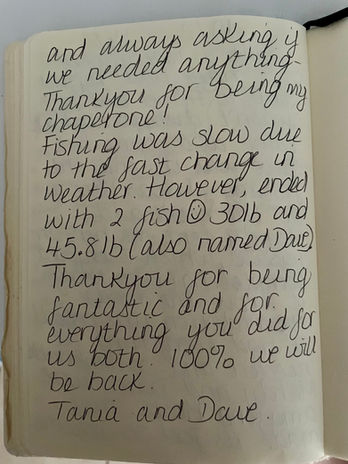 and always asking if
we needed anything-
Thankyou for being my
chaperone!
Fishing was slow due
to the fast change in
weather. However, ended
with 2 fish☺ 30lb and
45.8lb (also named Dave).
Thankyou for being
fantastic and for
everything you did for
us both. 100% we will
be back.
Tania and Dave.